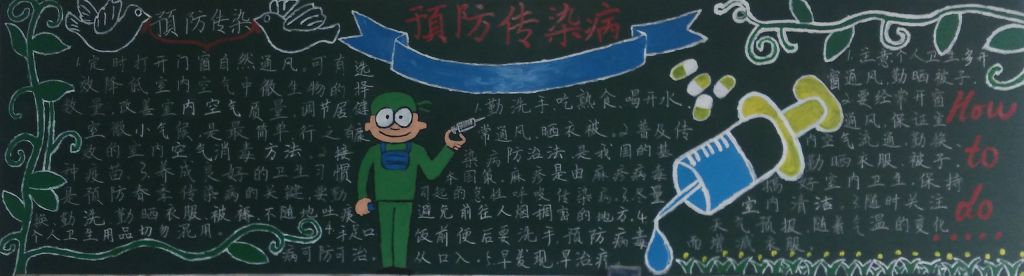 预防传染
预防传染病
1.定时打开门窗自然通风,可有
效降低室内空气中微生物的
数量,改善室内空气质量,调节居
室微小气候,是最简单,行之
有效的室内空气消毒方法.2.接
种疫苗.3.养成良好的卫生习惯
是预防春季传染病的关键,坚勤
勤洗 勤晒衣服、被褥,不随地吐痰
个人卫生用品切勿混用。
选择健
4.手及口
病可防可治.
1.勤洗手吃熟食喝开水,
常通风,晒衣被。2.普及传
染病防治法是我国的基
本国策,麻疹是由麻疹病毒
引起的急性呼吸传染病.3.尽量
避免前往人烟稠密的地方.4
饭前便后要洗手,预防病毒
从口入.5.早发现早治疗
1.注意个人卫生多开
窗通风,勤晒被子
要经常开窗
通风,保证室
内空气流通,勤换、
勤晒衣服、被子,
搞好室内卫生,保持
室内清洁.2.随时关注
天气预报,随着气温的变化
而增减衣服。
How
to
do